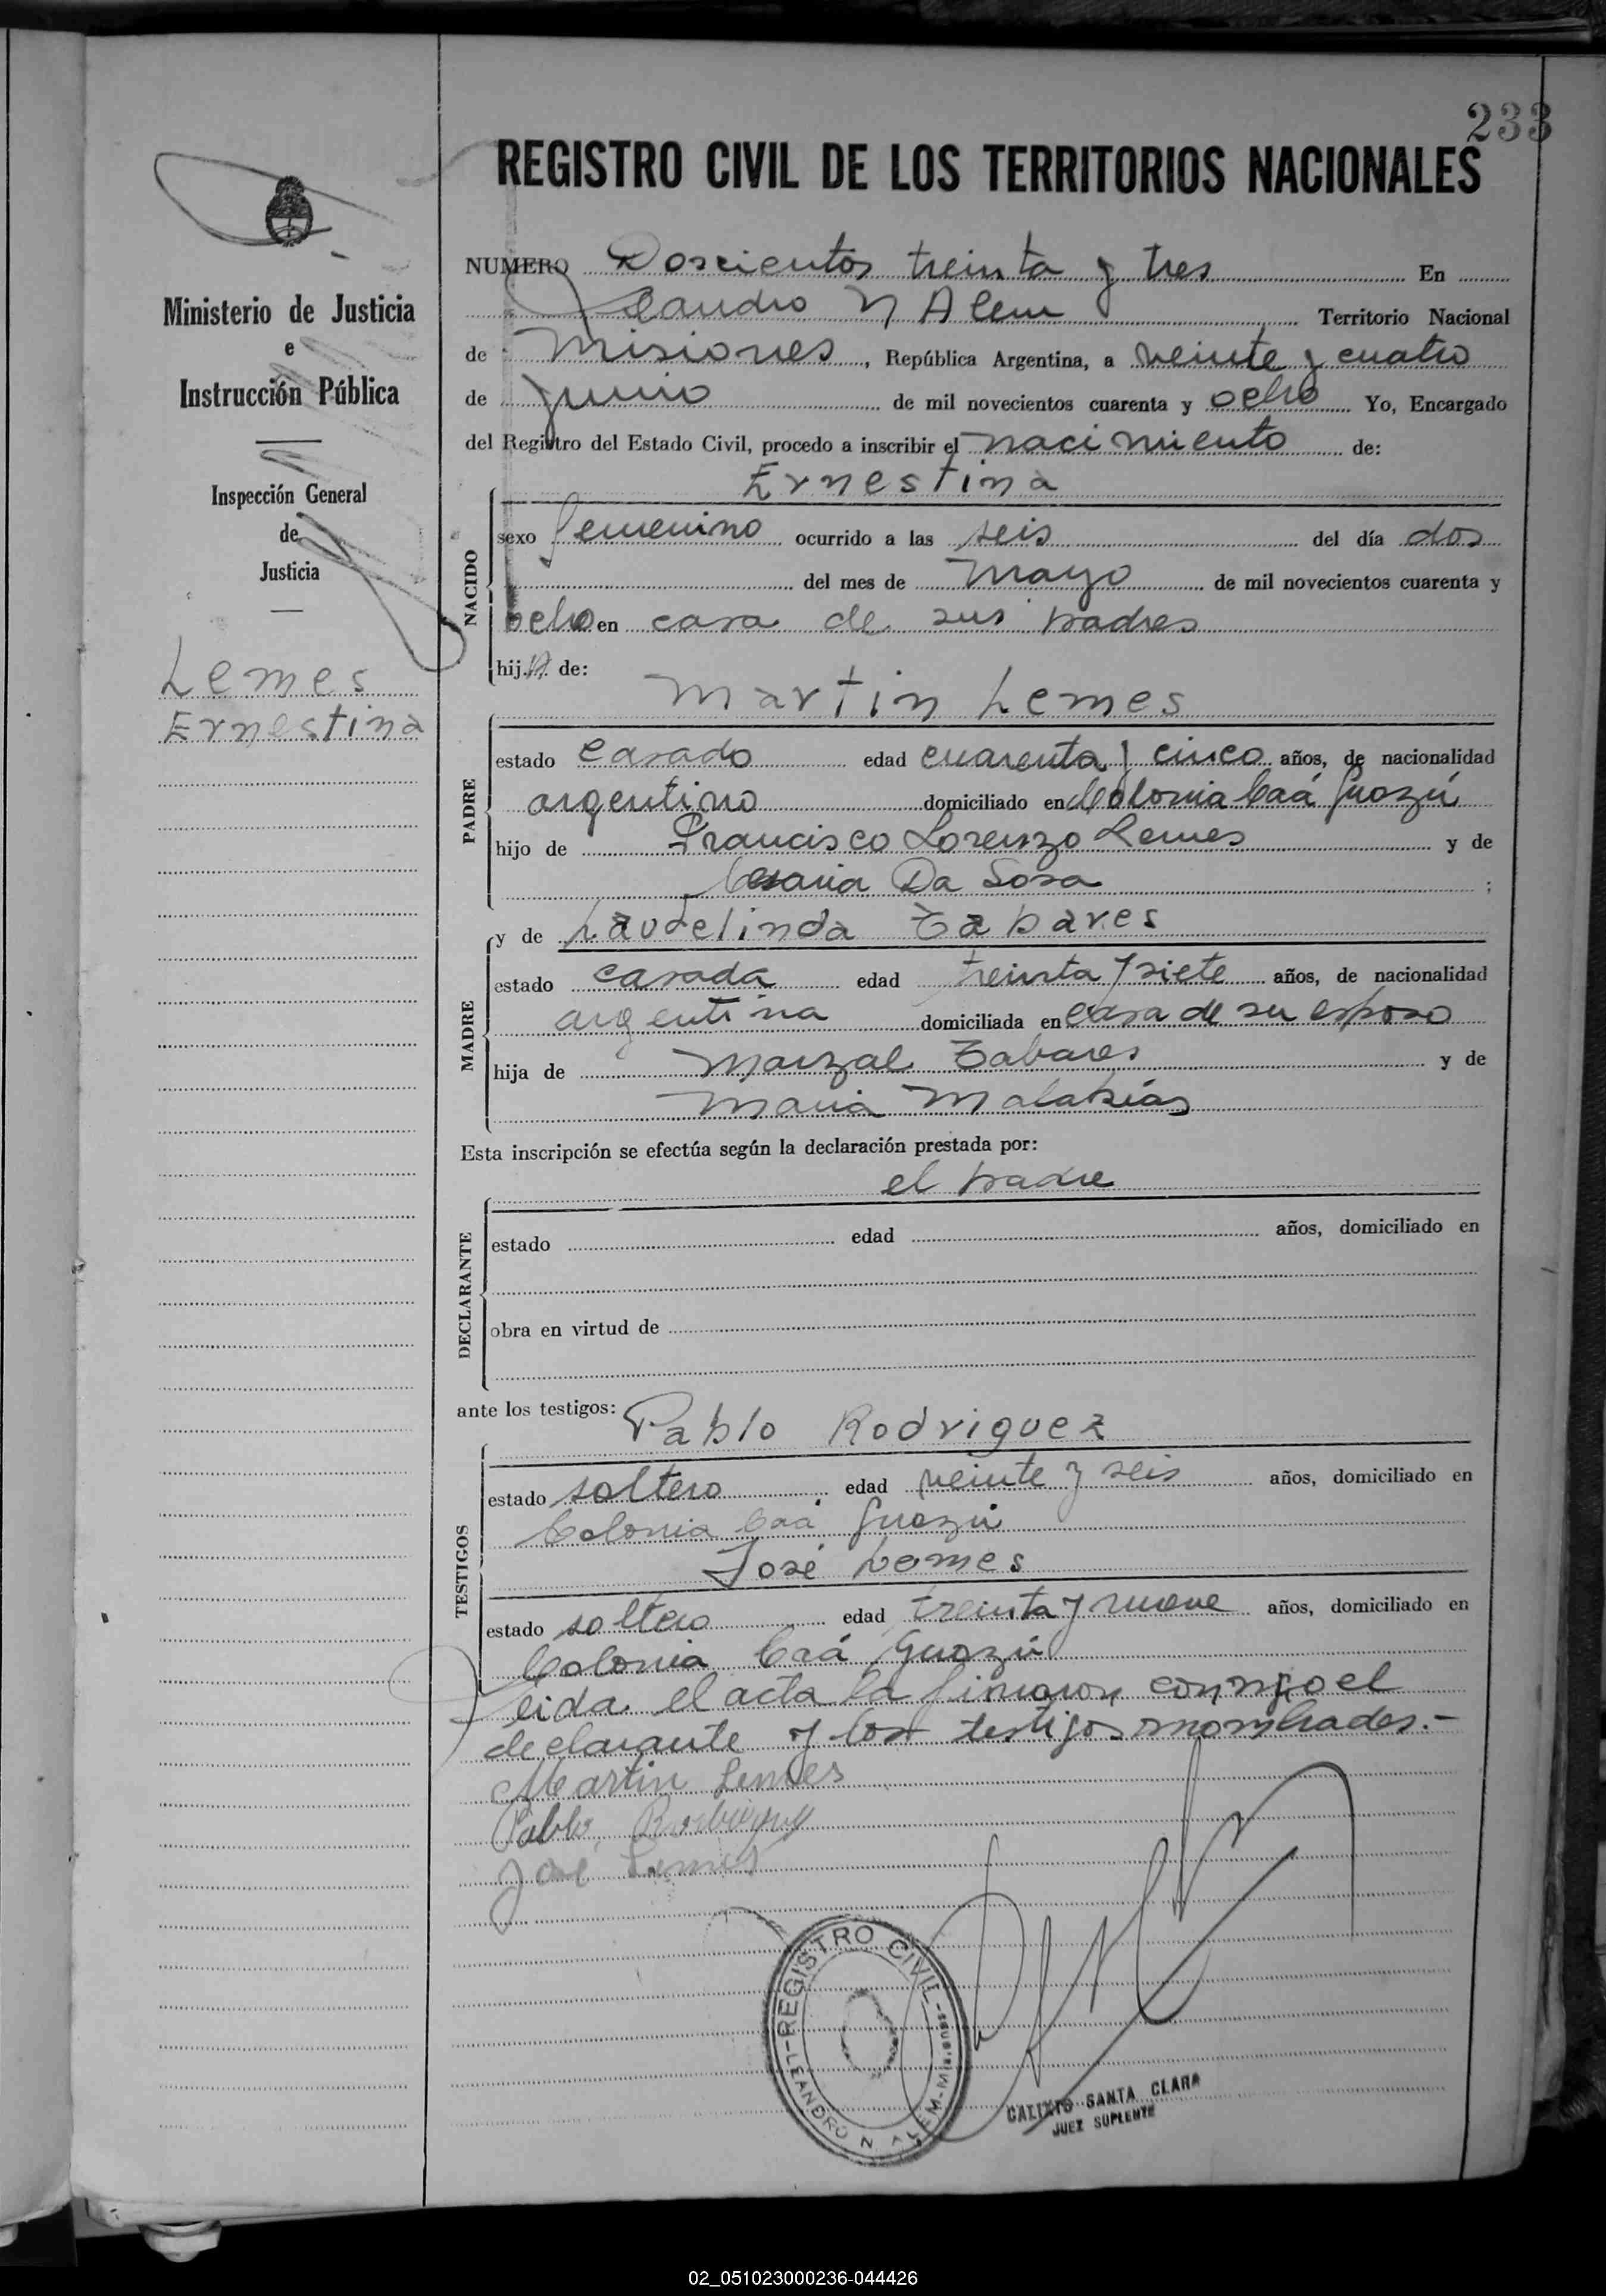 233
REGISTRO CIVIL DE LOS TERRITORIOS NACIONALES
Ministerio de Justicia
e
Instrucción Pública
Inspección General
de
Justicia
Lemes
Ernestina
NUMERO Doscientos treinta y tres En
Leandro N Alem Territorio Nacional
de Misiones, República Argentina, a veinte y cuatro
de junio de mil novecientos cuarenta y ocho Yo, Encargado
del Registro del Estado Civil, procedo a inscribir el nacimiento de:
Ernestina
NACIDO
sexo femenino ocurrido a las seis del día dos
del mes de Mayo de mil novecientos cuarenta y
ocho en casa de sus padres
hija de:
Martin Lemes
PADRE
estado casado edad cuarenta y cinco años, de nacionalidad
argentino domiciliado en Colonia Caá Guazú
hijo de Francisco Lorenzo Lemes y de
Cesaria Da Sosa;
y de Laudelinda Tabares
MADRE
estado casada edad treinta y siete años, de nacionalidad
argentina domiciliada en casa de su esposo
hija de Marzal Tabares y de
Maria Malakías
Esta inscripción se efectúa según la declaración prestada por:
el padre
DECLARANTE
estado edad años, domiciliado en
obra en virtud de
ante los testigos:
Pablo Rodriguez
TESTIGOS
estado soltero edad veinte y seis años, domiciliado en
Colonia Caá Guazú
José Lemes
estado soltero edad treinta y nueve años, domiciliado en
Colonia Caá Guazú
Leida el acta la firmaron conmigo el
declarante y los testigos nombrados.-
Martin Lemes
Pablo Rodriguez
José Lemes
REGISTRO CIVIL
LEANDRO N. ALEM-Misiones
CALIXTO SANTA CLARA
JUEZ SUPLENTE
02_051023000236-044426